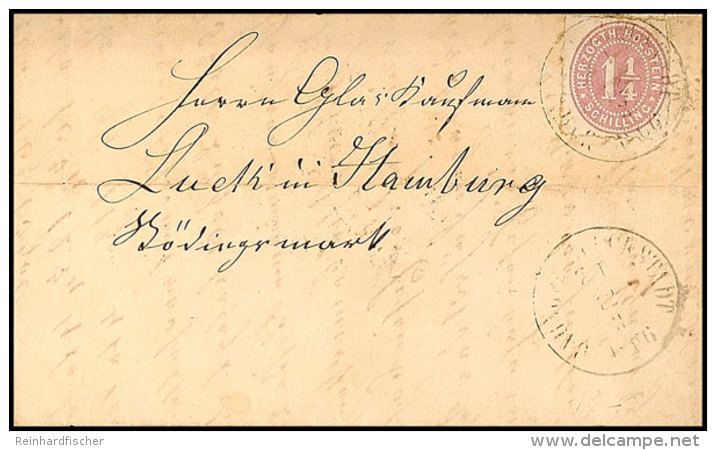 HERZOGTH. HOLSTEIN
1 1/4
SCHILLING
Herrn Glas Kaufmann
Luck in Hamburg
Rödingsmark
Reinhardfischer
www.delcampe.net